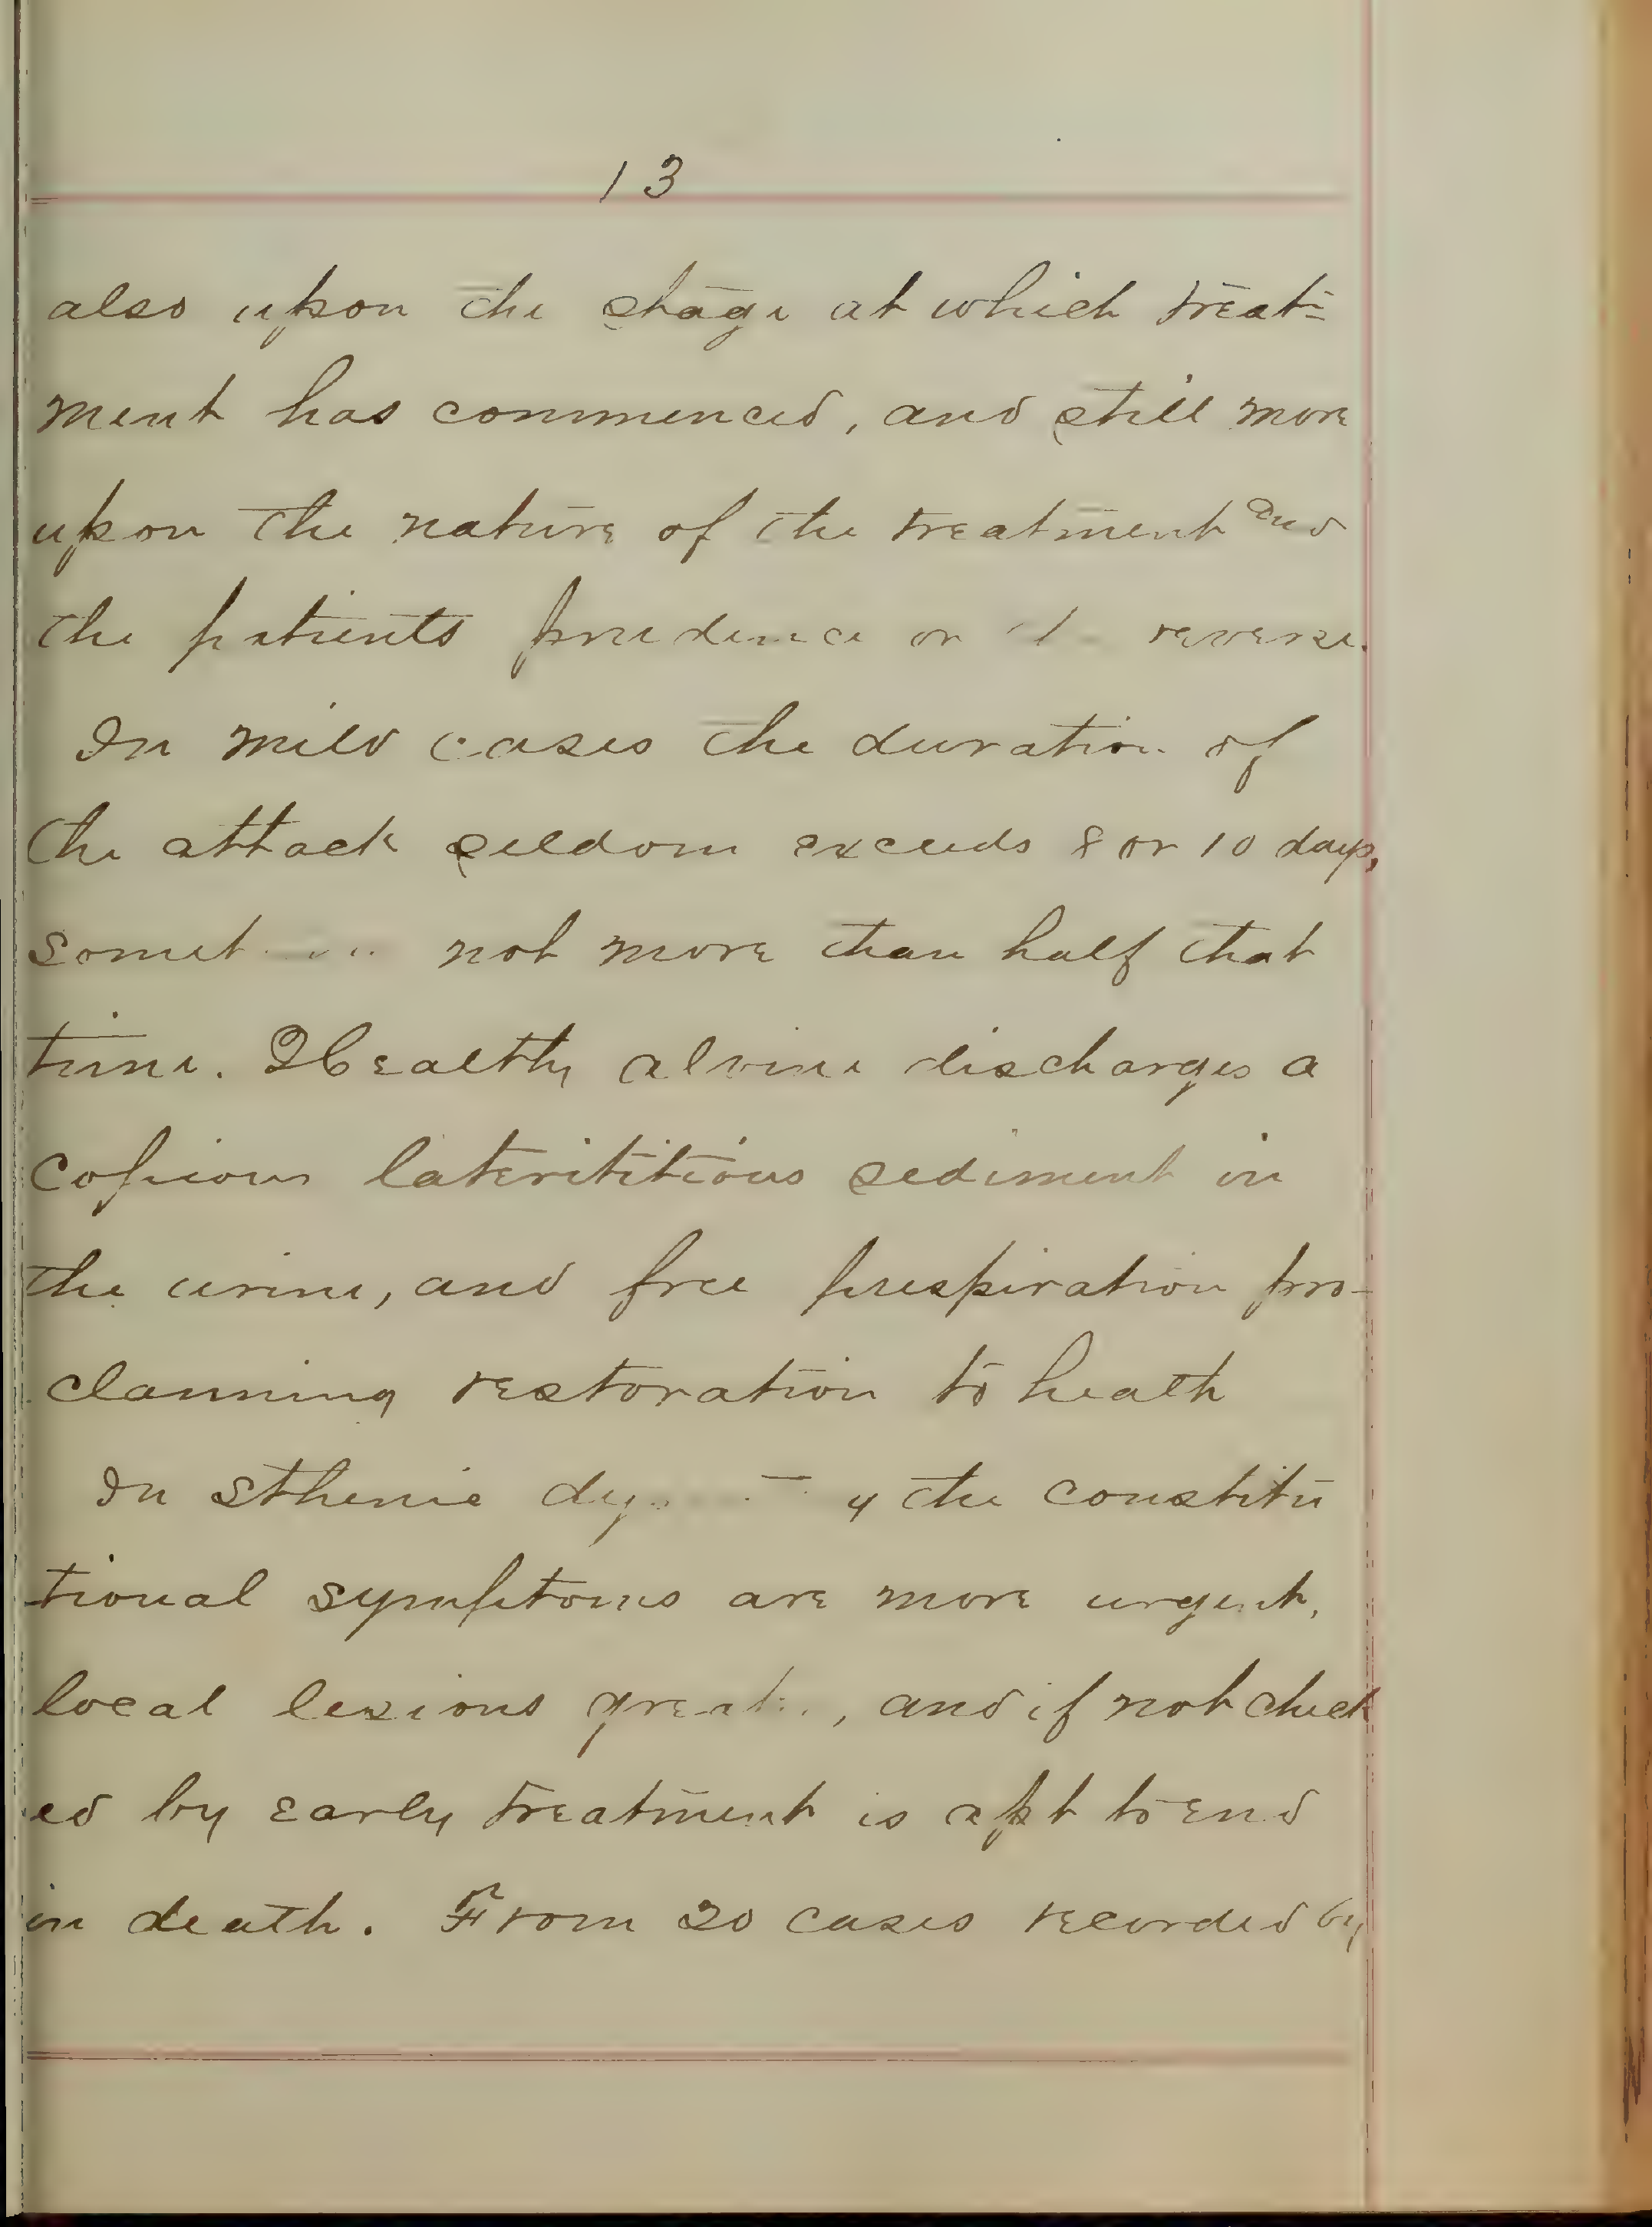 13
also upon the stage at which treat=
ment has commenced, and still more
upon the nature of the treatment and
the patients prudence or reverse.
In mild cases the duration of
the attack seldom exceeds 8 or 10 days,
not more than half that
time. Healthy alvine discharges a
copious laterititious sediment in
the urine, and free prespiration pro-
claiming restoration to heath
In sthenic the constitu
tional symptoms are more urgent,
local lesions , and if not check
ed by early treatment is apt to end
in death. From 20 cases recorded by